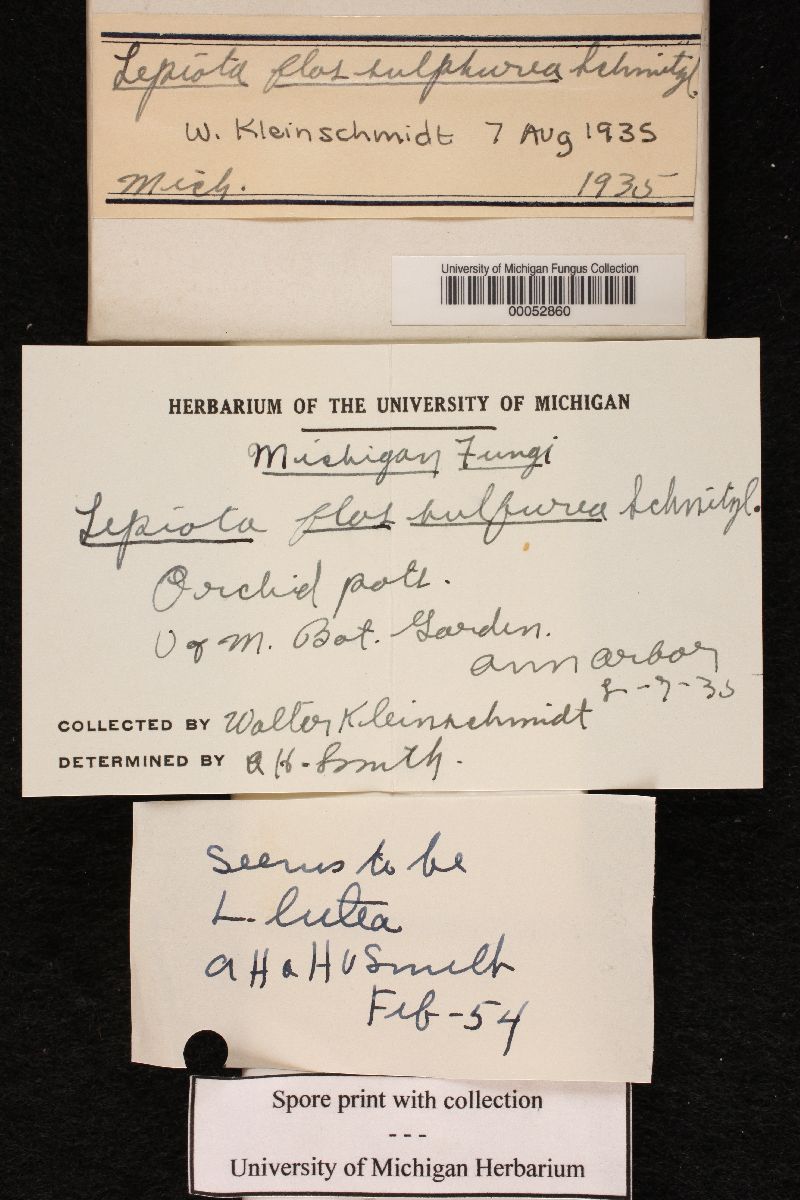 Lepiota flos sulphurea Schnitzl.
W. Kleinschmidt 7 Aug 1935
Mich. 1935
University of Michigan Fungus Collection
00052860
HERBARIUM OF THE UNIVERSITY OF MICHIGAN
Michigan Fungi
Lepiota flos sulfurea Schnitzl.
Orchid pots.
U of M. Bot. Garden.
Ann Arbor
8-7-35
COLLECTED BY Walter Kleinschmidt
DETERMINED BY A H. Smith.
Seems to be
L. lutea
A H & H V Smith
Feb-54
Spore print with collection
---
University of Michigan Herbarium